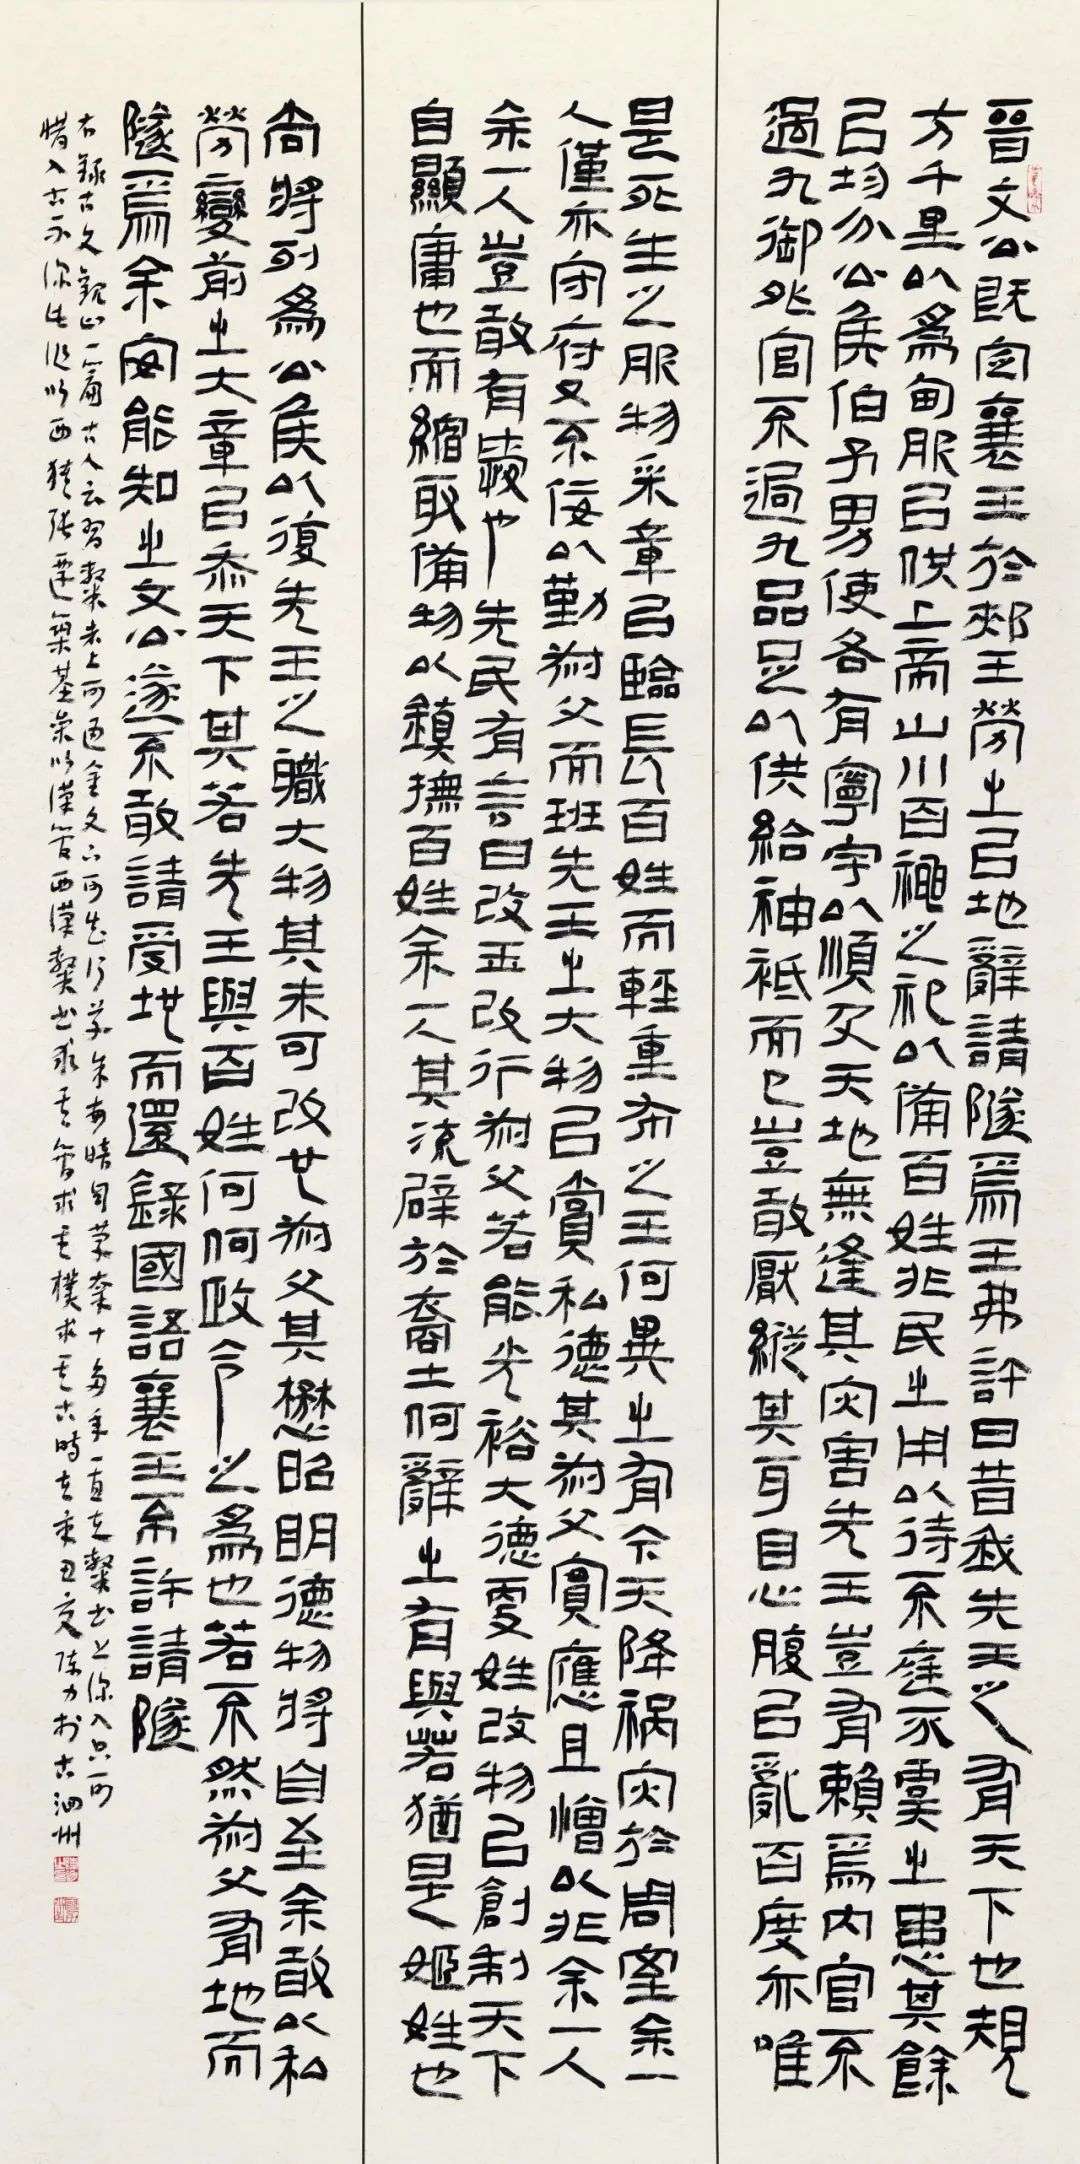 晉文公既定襄王於郟王勞之以地辭請隧焉王弗許曰昔我先王之有天下也規
方千里以為甸服以供上帝山川百神之祀以備百姓兆民之用以待不庭不虞之患其餘
以均分公侯伯子男使各有寧宇以順及天地無逢其災害先王豈有賴焉內官不
過九御外官不過九品足以供給神祇而已豈敢厭縱其耳目心腹以亂百度亦唯
是死生之服物采章以臨長百姓而輕重布之王何異之有今天降禍災於周室余一
人僅亦守府又不佞以勤叔父而班先王之大物以賞私德其叔父實應且憎以非余一人
余一人豈敢有愛也先民有言曰改玉改行叔父若能光裕大德更姓改物以創制天下
自顯庸也而縮取備物以鎮撫百姓余一人其流辟於裔土何辭之有與若猶是姬姓也
尚將列為公侯以復先王之職大物其未可改也叔父其懋昭明德物將自至余敢以私
勞變前之大章以忝天下其若先王與百姓何何政令之為也若不然叔父有地而
隧焉余安能知之文公遂不敢請受地而還錄國語襄王不許請隧
右錄古文觀止一篇古人云習隸書上可通金文下可出行草